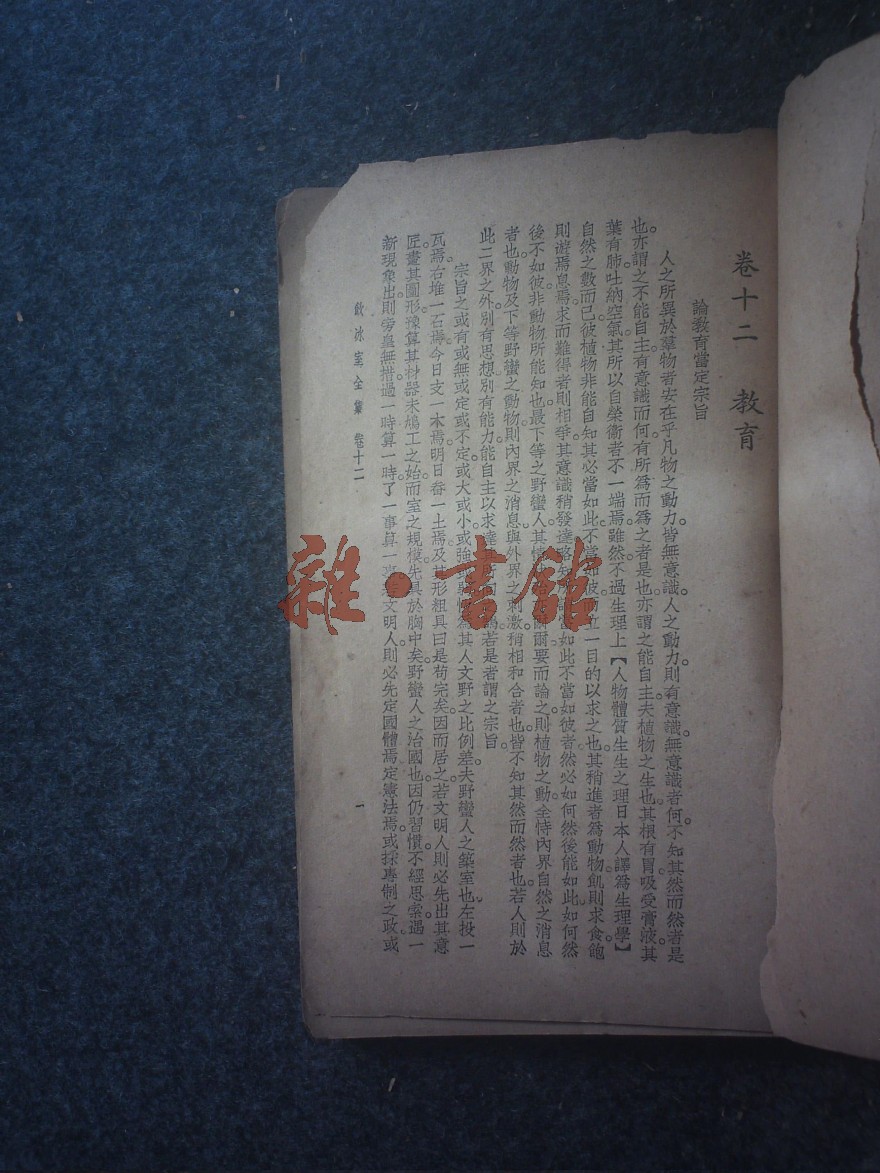 卷十二　教育
論教育當定宗旨
人之所異於羣物者安在乎凡物之動力。皆無意識人之動力。則有意識。無意識者何。不知其然而然者是
也。亦謂之不能自主有意識而何有所爲而爲之者是也。亦謂之能自主夫植物之生也其根有胃吸受膏液。其
葉有肺吐納空氣其所以自榮衞者不一端焉雖然不過生理上【人物體質生生之理日本人譯爲生理學】
自然之數而已彼植物非能自知其必當如此不當如彼而立一目的以求之也。其稍進者爲動物飢則求食飽
則游焉息焉求而難得者則相爭其意識稍發達略知當如此不當如彼者然必如何然後能如此如何然
後不如彼非動物所能知也最下等之野蠻人其情爾爾要而論之則植物之動全恃內界自然之消息
者也動物及下等野蠻之動物則內界之消息與外界之刺激稍相和合者也。皆不知其然而然者也。若人則於
此二界之外別有思想別有能力能自主以求達若是者謂之宗旨。
宗旨之或有或無或定或不定或大或小或強或弱爲其人文野之比例差。夫野蠻人之築室也左投一
瓦焉右堆一石焉今日支一木焉明日畚一土焉及其形粗具曰是苟完矣因而居之若文明人則必先出其意
匠畫其圖形豫算其料器未鳩工之始而室之規模先具於胸中矣野蠻人之治國也因仍習慣。不經思索遇一
新現象出則旁皇無措過一時算一時了一事算一事文明人則必先定國體焉定憲法焉或採專制之政或
飲冰室全集　卷十二
一
雜·書館